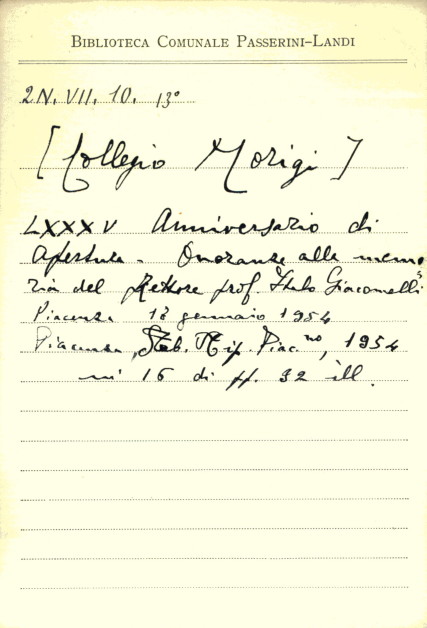 BIBLIOTECA COMUNALE PASSERINI-LANDI
2N. VII. 10. 13°
[Collegio Morigi]
LXXXV Anniversario di
Apertura - Onoranze alla memo
ria del Rettore prof. Italo Giacomelli
Piacenza 18 gennaio 1954
Piacenza, Stab. Tip. Piac.no, 1954
in 16 di pp. 32 ill.